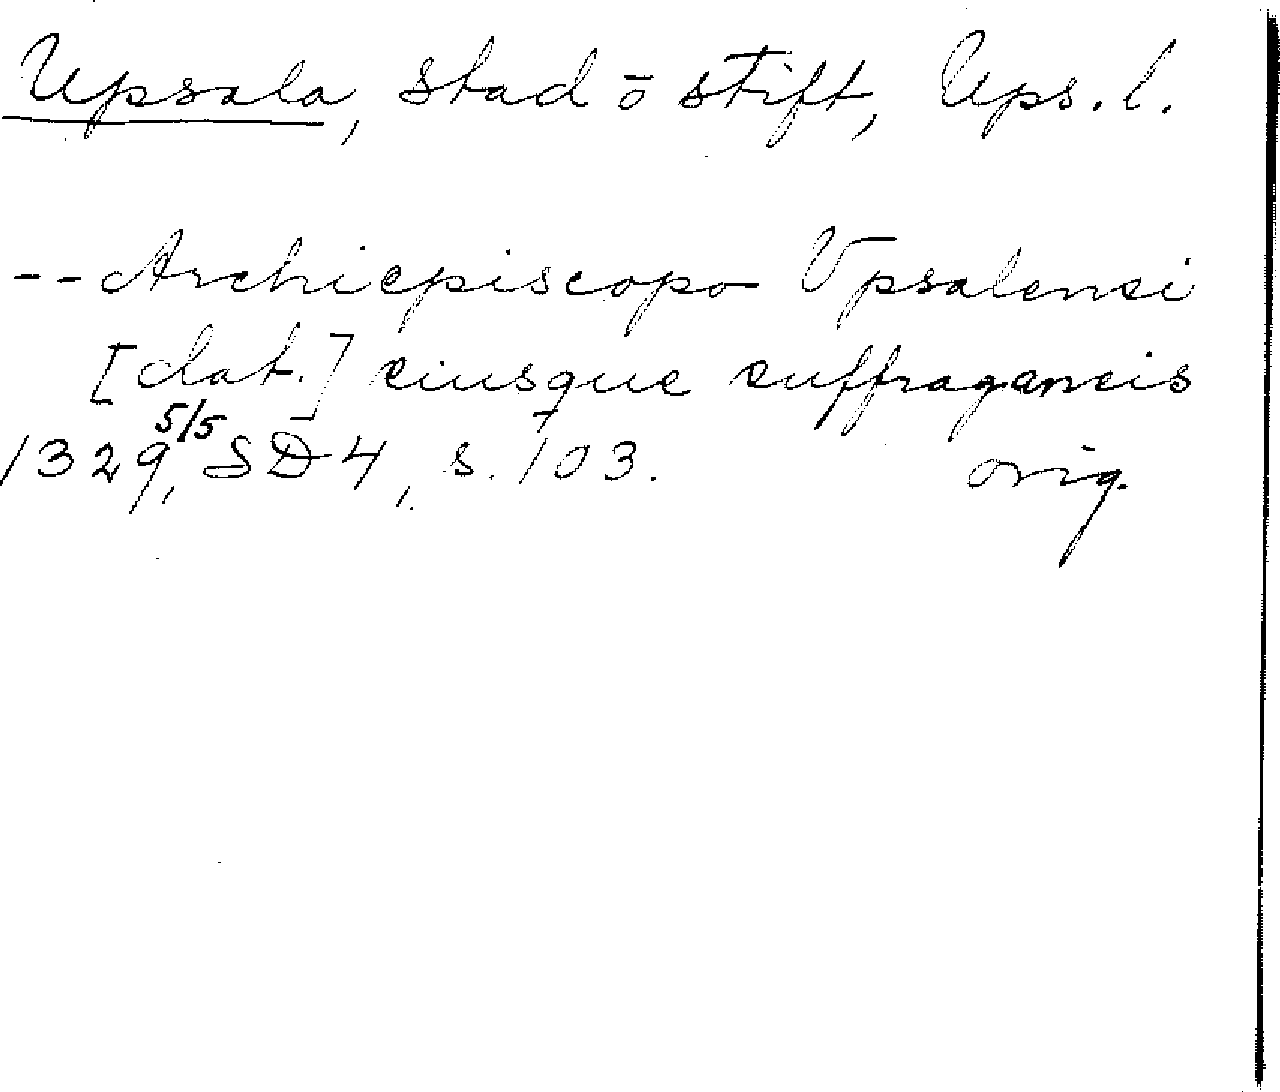 Upsala, stad ō stift, Ups. l.
-- Archiepiscopo Vpsalensi
[dat.] eiusque suffraganeis
1329 5/5, SD 4, s. 103. orig.